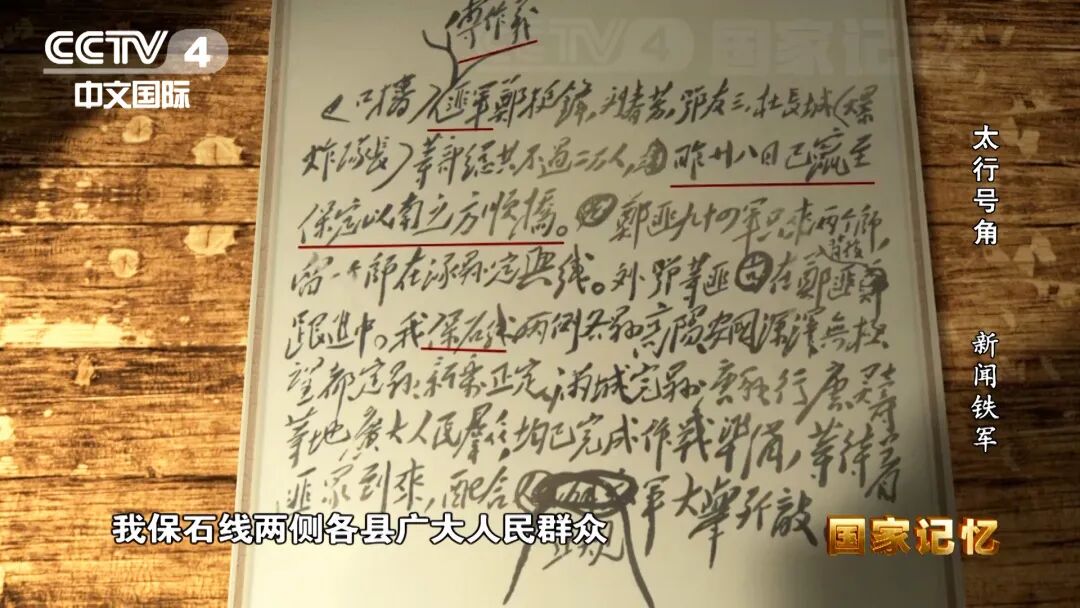 CCTV 4
中文国际
CCTV 4 国家记忆
傅作義
(口播)匪軍鄭挺鋒,刘春芳,鄂友三,杜長城(爆
炸隊長)等部總共不過二万人,昨廿八日已竄至
保定以南之方順橋。鄭匪九十四軍只來两个師,
留一个師在涿縣定興线。刘鄂等匪在鄭匪
跟進中。我保石线两側各縣高陽安国深澤無極
望都定縣新樂正定滿城完縣唐縣行唐灵寿
等地廣大人民羣众均已完成作戰準備,等待着
匪軍到來,配合軍大舉歼敵
太行号角
新闻铁军
我保石线两侧各县广大人民群众
国家记忆